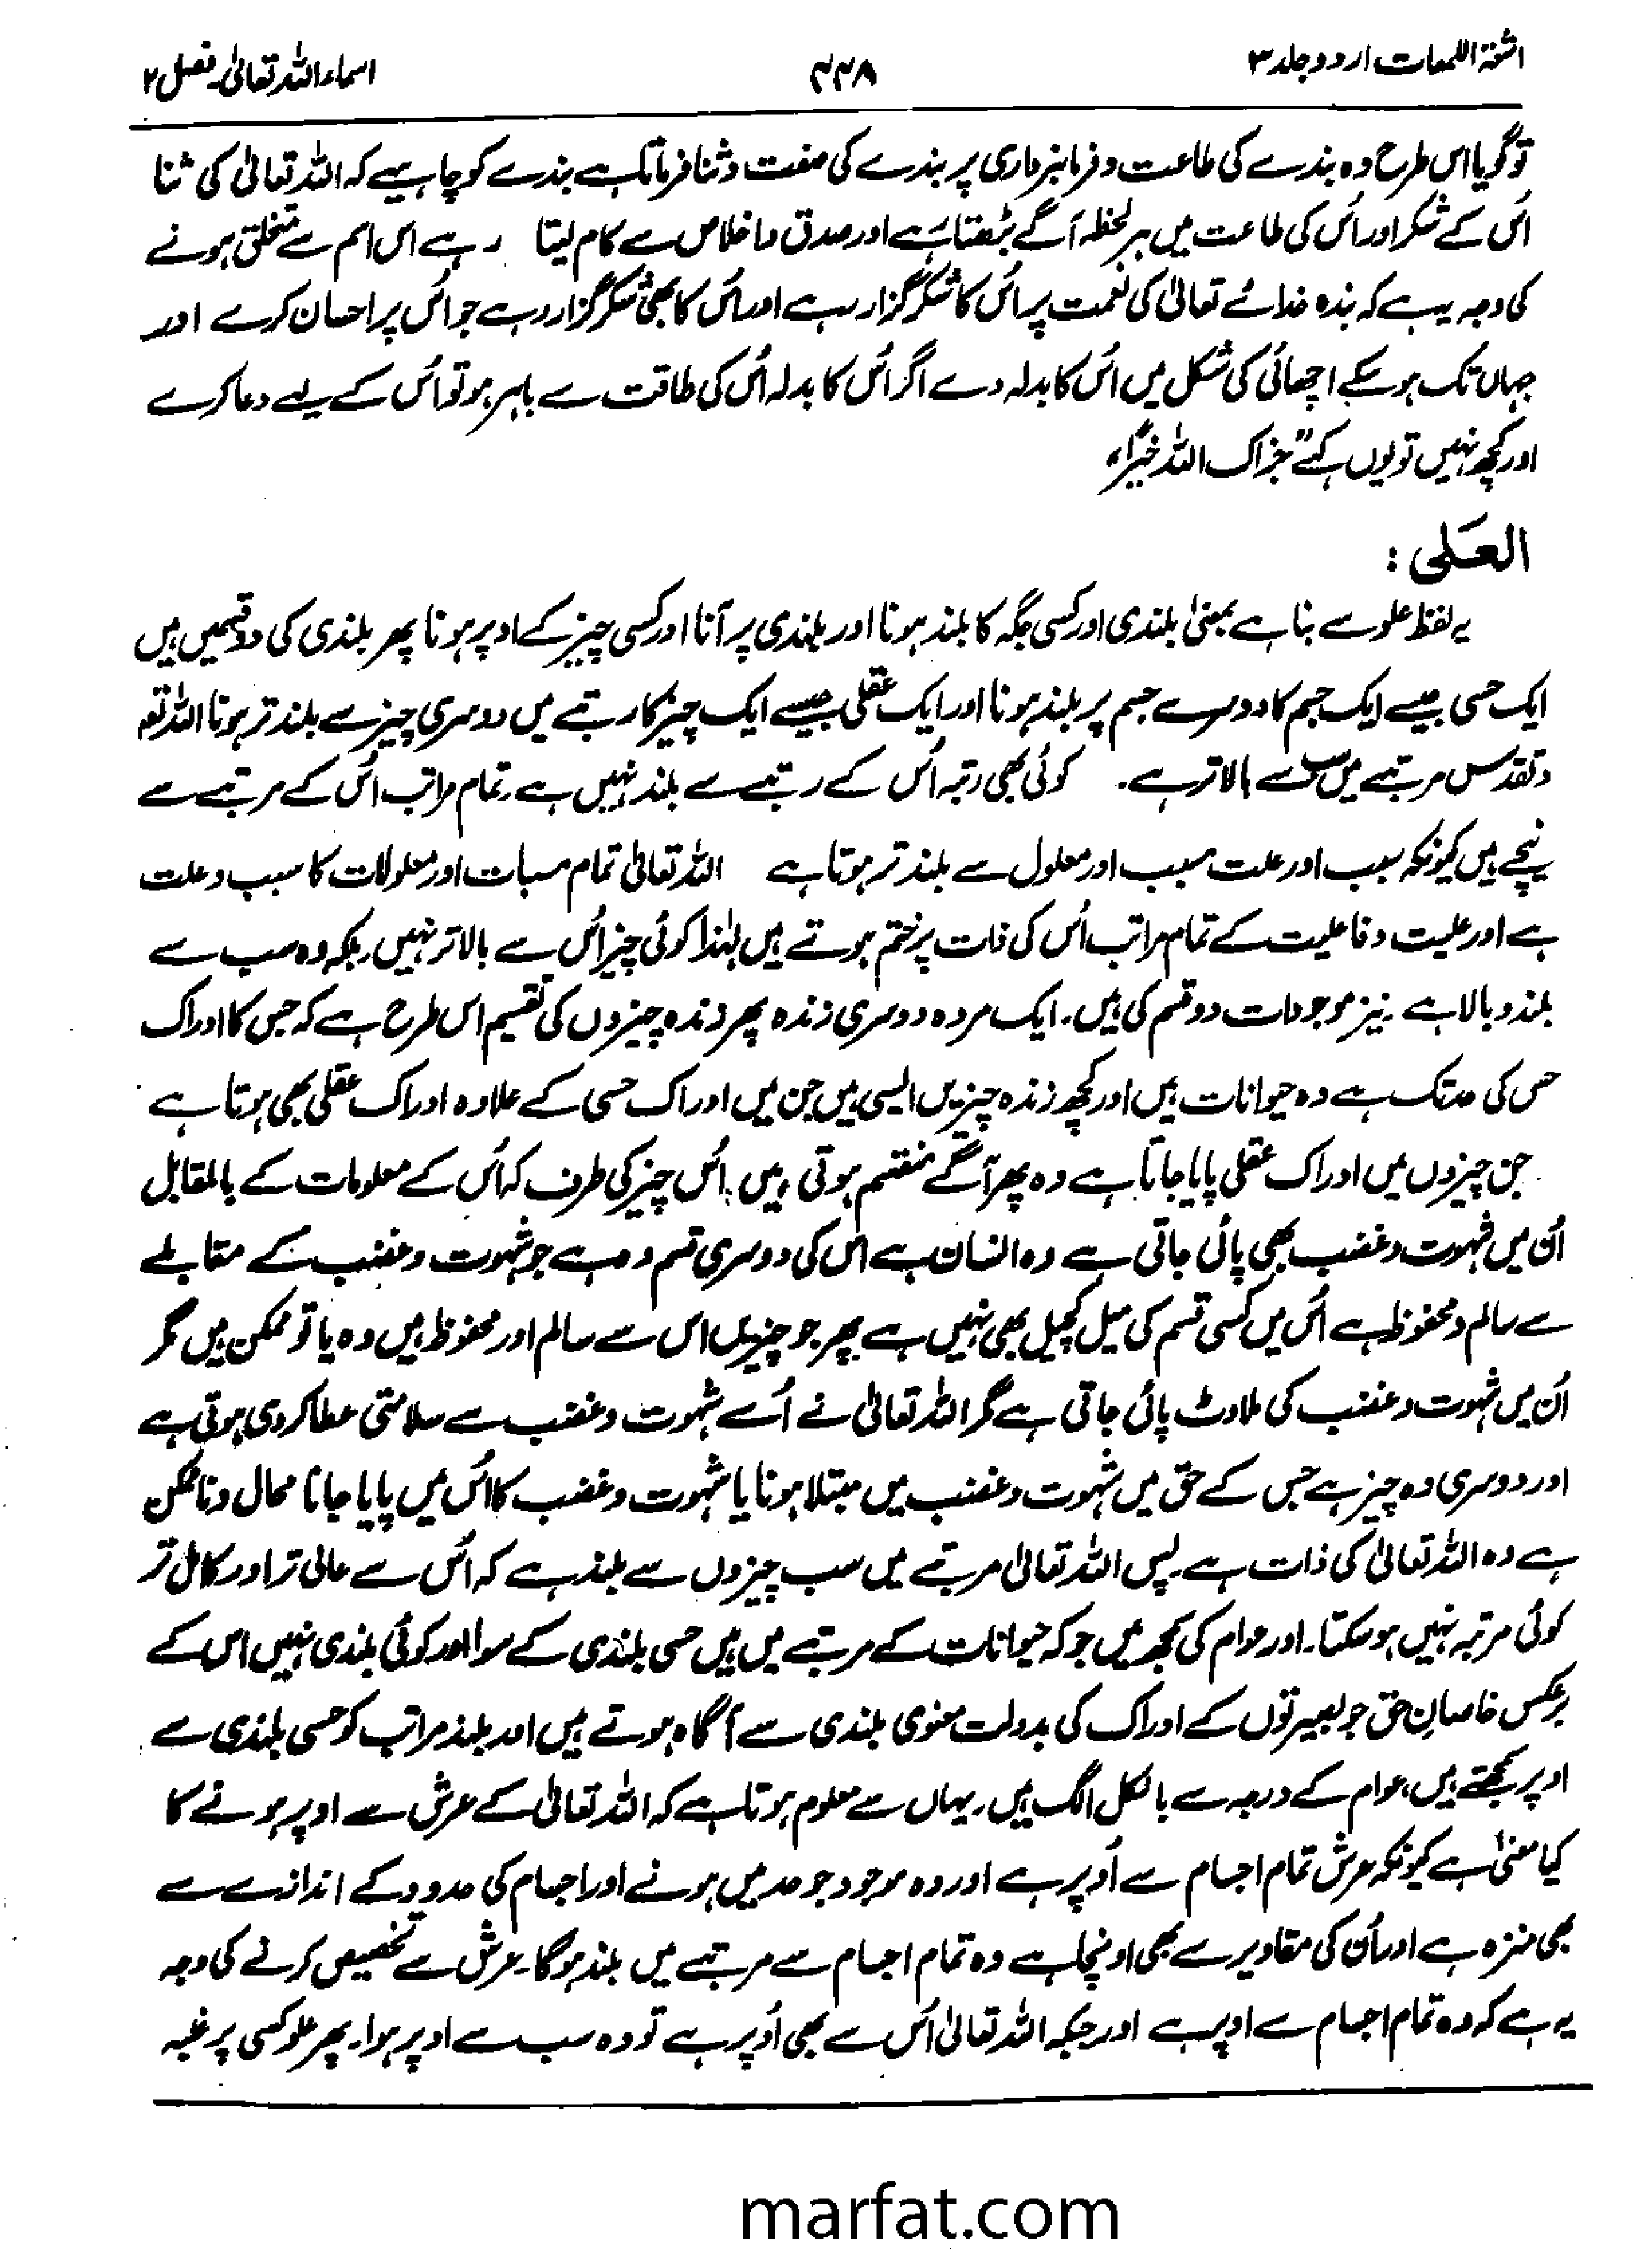 اشعۃ اللمعات اردو جلد ۳
۴۴۸
اسماء اللہ تعالیٰ۔ فصل ۲
تو گویا اس طرح وہ بندے کی طاعت و فرمانبرداری پر بندے کی صفت و ثنا فرماتا ہے بندے کو چاہیے کہ اللہ تعالیٰ کی ثنا
اُس کے شکر اور اُس کی طاعت میں ہر لحظہ آگے بڑھتا رہے اور صدق و اخلاص سے کام لیتا رہے اس اسم سے متخلق ہونے
کی وجہ یہ ہے کہ بندہ خدائے تعالیٰ کی نعمت پر اُس کا شکر گزار رہے اور اُس کا بھی شکر گزار رہے جو اُس پر احسان کرے اور
جہاں تک ہو سکے اچھائی کی شکل میں اُس کا بدلہ دے اگر اُس کا بدلہ اُس کی طاقت سے باہر ہو تو اُس کے لیے دعا کرے
اور کچھ نہیں تو یوں کہے ”جزاک اللہ خیراً“
العَلی :
یہ لفظ علو سے بنا ہے بمعنیٰ بلندی اور کسی جگہ کا بلند ہونا اور بلندی پر آنا اور کسی چیز کے اوپر ہونا پھر بلندی کی دو قسمیں ہیں
ایک حسی جیسے ایک جسم کا دوسرے جسم پر بلند ہونا اور ایک عقلی جیسے ایک چیز کا رتبے میں دوسری چیز سے بلند تر ہونا اللہ تعٰ
و تقدس مرتبے میں سب سے بالاتر ہے۔ کوئی بھی رتبہ اُس کے رتبے سے بلند نہیں ہے۔ تمام مراتب اُس کے مرتبے سے
نیچے ہیں کیونکہ سبب اور علت مسبب اور معلول سے بلند تر ہوتا ہے اللہ تعالیٰ تمام مسببات اور معلولات کا سبب و علت
ہے اور علیت و فاعلیت کے تمام مراتب اُس کی ذات پر ختم ہوتے ہیں لہٰذا کوئی چیز اُس سے بالاتر نہیں بلکہ وہ سب سے
بلند و بالا ہے۔ نیز موجودات دو قسم کی ہیں۔ ایک مردہ دوسری زندہ پھر زندہ چیزوں کی تقسیم اس طرح ہے کہ جس کا ادراک
حس کی حد تک ہے وہ حیوانات ہیں اور کچھ زندہ چیزیں ایسی ہیں جن میں ادراک حسی کے علاوہ ادراک عقلی بھی ہوتا ہے
جن چیزوں میں ادراک عقلی پایا جاتا ہے وہ پھر آگے منقسم ہوتی ہیں، اُس چیز کی طرف کہ اُس کے معلومات کے بالمقابل
اُن میں شہوت و غضب بھی پائی جاتی ہے وہ انسان ہے اس کی دوسری قسم وہ ہے جو شہوت و غضب کے مقابلے
سے سالم و محفوظ ہے اُس میں کسی قسم کی میل کچیل بھی نہیں ہے پھر جو چیزیں اس سے سالم اور محفوظ ہیں وہ یا تو ممکن ہیں مگر
اُن میں شہوت و غضب کی ملاوٹ پائی جاتی ہے مگر اللہ تعالیٰ نے اُسے شہوت و غضب سے سلامتی عطا کر دی ہوتی ہے
اور دوسری وہ چیز ہے جس کے حق میں شہوت و غضب میں مبتلا ہونا یا شہوت و غضب کا اُس میں پایا جانا محال و ناممکن
ہے وہ اللہ تعالیٰ کی ذات ہے۔ پس اللہ تعالیٰ مرتبے میں سب چیزوں سے بلند ہے کہ اُس سے عالی تر اور کامل تر
کوئی مرتبہ نہیں ہو سکتا۔ اور عوام کی سمجھ میں جو کہ حیوانات کے مرتبے میں ہیں حسی بلندی کے سوا اور کوئی بلندی نہیں اس کے
برعکس خاصانِ حق جو بصیرتوں کے ادراک کی بدولت معنوی بلندی سے آگاہ ہوتے ہیں اور بلند مراتب کو حسی بلندی سے
اوپر سمجھتے ہیں، عوام کے درجہ سے بالکل الگ ہیں۔ یہاں سے معلوم ہوتا ہے کہ اللہ تعالیٰ کے عرش سے اوپر ہونے کا
کیا معنیٰ ہے کیونکہ عرش تمام اجسام سے اُوپر ہے اور وہ موجود جو حد میں ہونے اور اجسام کی حدود کے اندازے سے
بھی منزہ ہے اور اُن کی مقادیر سے بھی اونچا ہے وہ تمام اجسام سے مرتبے میں بلند ہوگا۔ عرش سے تخصیص کرنے کی وجہ
یہ ہے کہ وہ تمام اجسام سے اوپر ہے اور جبکہ اللہ تعالیٰ اُس سے بھی اُوپر ہے تو وہ سب سے اوپر ہوا۔ پھر علو کسی پر غلبہ
marfat.com